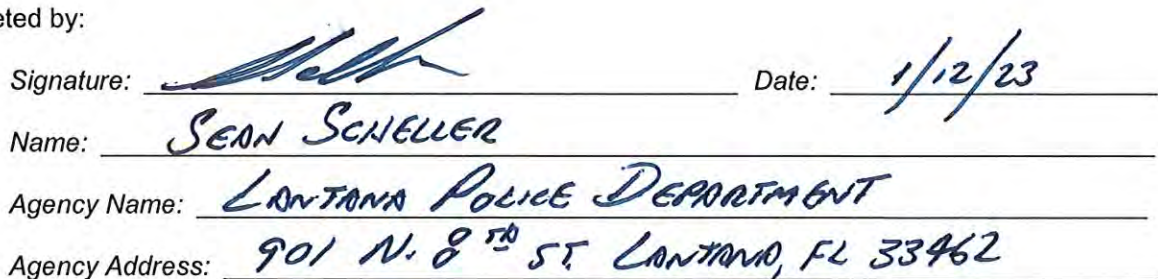 eted by:
Signature: Date: 1/12/23
Name: SEAN SCHELLER
Agency Name: LANTANA POLICE DEPARTMENT
Agency Address: 901 N. 8TH ST. LANTANA, FL 33462